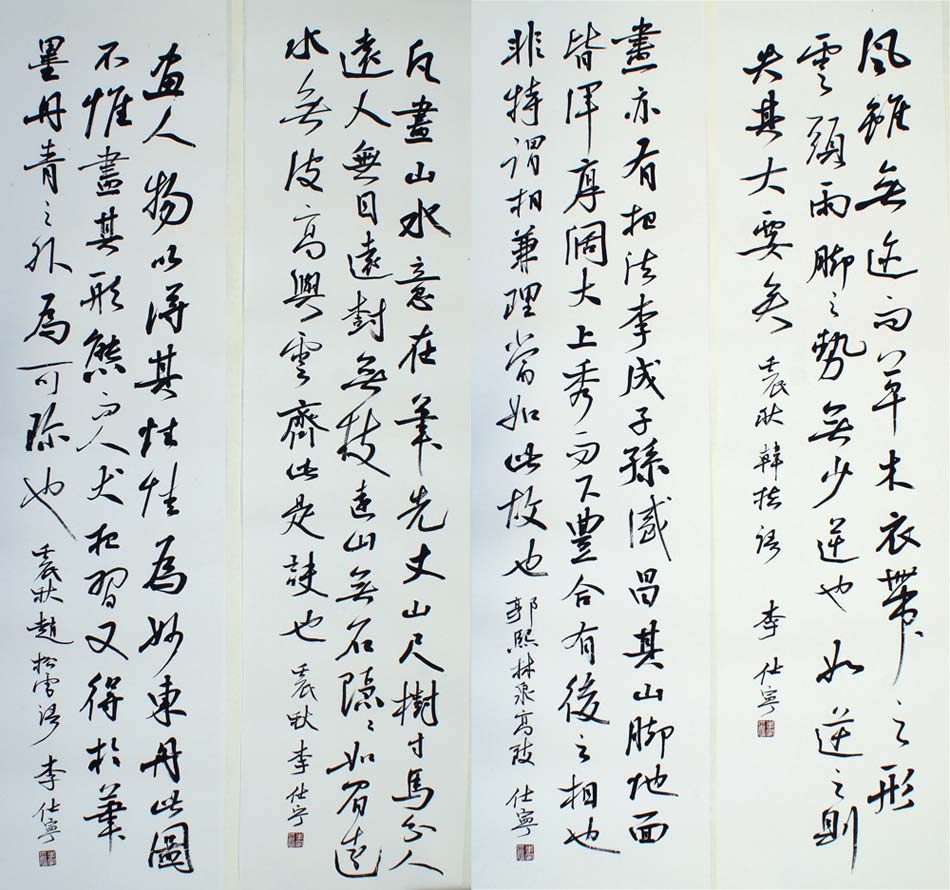 风雖無迹而草木衣帶之形
雲頭雨脚之勢無少逆也如逆之則
失其大要矣 壬辰秋 韓拙語 李仕寧
畫亦有相法李成子孫盛昌其山脚地面
皆渾厚闊大上秀而下豐合有後之相也
非特謂相兼理當如此故也 郭熙林泉高致 仕寧
凡畫山水意在筆先丈山尺樹寸馬分人
遠人無目遠樹無枝遠山無石隱〻如眉遠
水無波高與雲齊此是訣也 壬辰秋 李仕宁
画人物以得其性情為妙東丹此圖
不惟盡其形態而人犬相習又得於筆
墨丹青之外為可珍也 壬辰秋趙松雪語 李仕寧